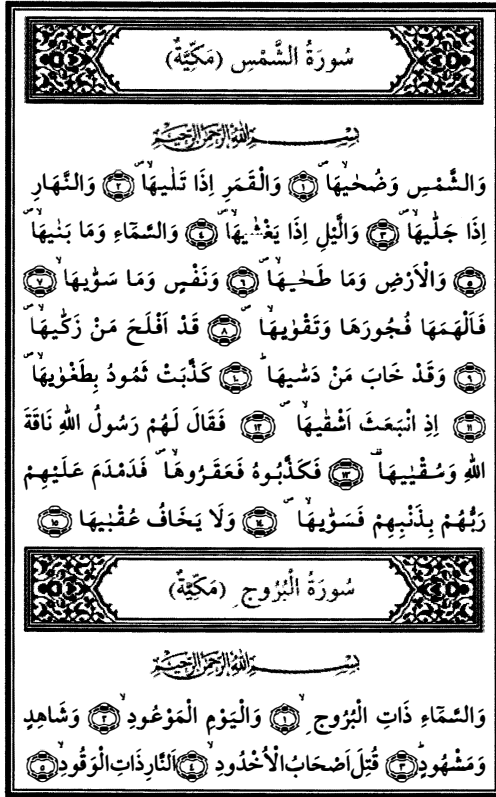 سُورَةُ الشَّمْسِ (مَكِّيَّةٌ)
بِسْمِ اللّٰهِ الرَّحْمٰنِ الرَّحِيمِ
وَالشَّمْسِ وَضُحٰيهَاۙ ﴿١﴾ وَالْقَمَرِ اِذَا تَلٰيهَاۙ ﴿٢﴾ وَالنَّهَارِ
اِذَا جَلّٰيهَاۙ ﴿٣﴾ وَالَّيْلِ اِذَا يَغْشٰيهَاۙ ﴿٤﴾ وَالسَّمَٓاءِ وَمَا بَنٰيهَاۙ
﴿٥﴾ وَالْاَرْضِ وَمَا طَحٰيهَاۙ ﴿٦﴾ وَنَفْسٍ وَمَا سَوّٰيهَاۙ ﴿٧﴾
فَاَلْهَمَهَا فُجُورَهَا وَتَقْوٰيهَاۙ ﴿٨﴾ قَدْ اَفْلَحَ مَنْ زَكّٰيهَاۙ
﴿٩﴾ وَقَدْ خَابَ مَنْ دَسّٰيهَاۜ ﴿١٠﴾ كَذَّبَتْ ثَمُودُ بِطَغْوٰيهَاۙ
﴿١١﴾ اِذِ انْبَعَثَ اَشْقٰيهَاۙ ﴿١٢﴾ فَقَالَ لَهُمْ رَسُولُ اللّٰهِ نَاقَةَ
اللّٰهِ وَسُقْيٰيهَاۜ ﴿١٣﴾ فَكَذَّبُوهُ فَعَقَرُوهَاۙ فَدَمْدَمَ عَلَيْهِمْ
رَبُّهُمْ بِذَنْبِهِمْ فَسَوّٰيهَاۙ ﴿١٤﴾ وَلَا يَخَافُ عُقْبٰيهَا ﴿١٥﴾
سُورَةُ الْبُرُوجِ (مَكِّيَّةٌ)
بِسْمِ اللّٰهِ الرَّحْمٰنِ الرَّحِيمِ
وَالسَّمَٓاءِ ذَاتِ الْبُرُوجِۙ ﴿١﴾ وَالْيَوْمِ الْمَوْعُودِۙ ﴿٢﴾ وَشَاهِدٍ
وَمَشْهُودٍۜ ﴿٣﴾ قُتِلَ اَصْحَابُ الْاُخْدُودِۙ ﴿٤﴾ اَلنَّارِ ذَاتِ الْوَقُودِۙ ﴿٥﴾